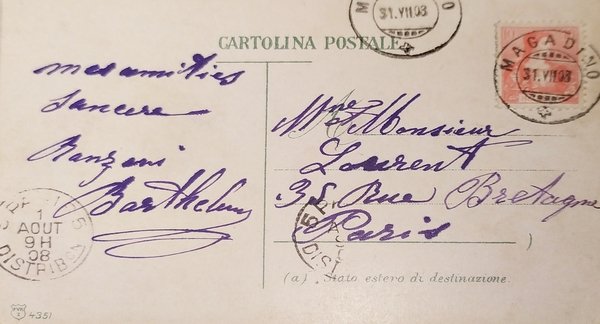 CARTOLINA POSTALE
MAGADINO
31.VII.08
MAGADINO
31.VII.08
10
mes amitiés
sincère
Ranzoni
Barthelemy
Mme et Monsieur
Laurent
35 Rue Bretagne
Paris
1
AOUT
9H
08
DISTRIB
5
DIST
(a) Stato estero di destinazione.
4351